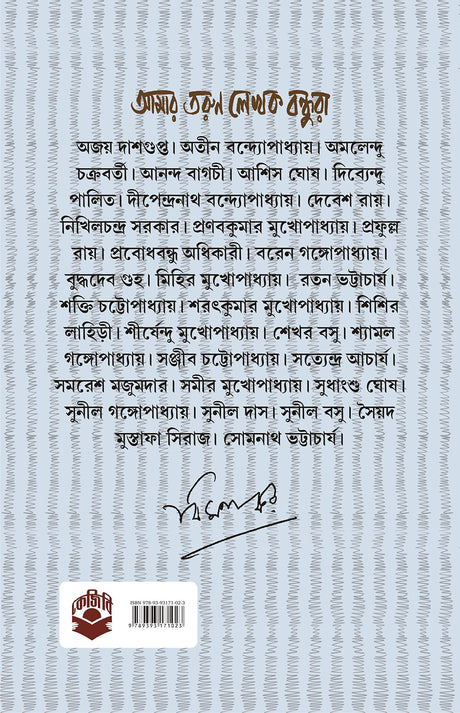 আমার তরুণ লেখক বন্ধুরা
অজয় দাশগুপ্ত। অতীন বন্দ্যোপাধ্যায়। অমলেন্দু
চক্রবর্তী। আনন্দ বাগচী। আশিস ঘোষ। দিব্যেন্দু
পালিত। দীপেন্দ্রনাথ বন্দ্যোপাধ্যায়। দেবেশ রায়।
নিখিলচন্দ্র সরকার। প্রণবকুমার মুখোপাধ্যায়। প্রফুল্ল
রায়। প্রবোধবন্ধু অধিকারী। বরেন গঙ্গোপাধ্যায়।
বুদ্ধদেব গুহ। মিহির মুখোপাধ্যায়। রতন ভট্টাচার্য।
শক্তি চট্টোপাধ্যায়। শরৎকুমার মুখোপাধ্যায়। শিশির
লাহিড়ী। শীর্ষেন্দু মুখোপাধ্যায়। শেখর বসু। শ্যামল
গঙ্গোপাধ্যায়। সঞ্জীব চট্টোপাধ্যায়। সত্যেন্দ্র আচার্য।
সমরেশ মজুমদার। সমীর মুখোপাধ্যায়। সুধাংশু ঘোষ।
সুনীল গঙ্গোপাধ্যায়। সুনীল দাস। সুনীল বসু। সৈয়দ
মুস্তাফা সিরাজ। সোমনাথ ভট্টাচার্য।
বিমল কর
কেজিবি
ISBN 978-93-93171-02-3
9 789393 171023